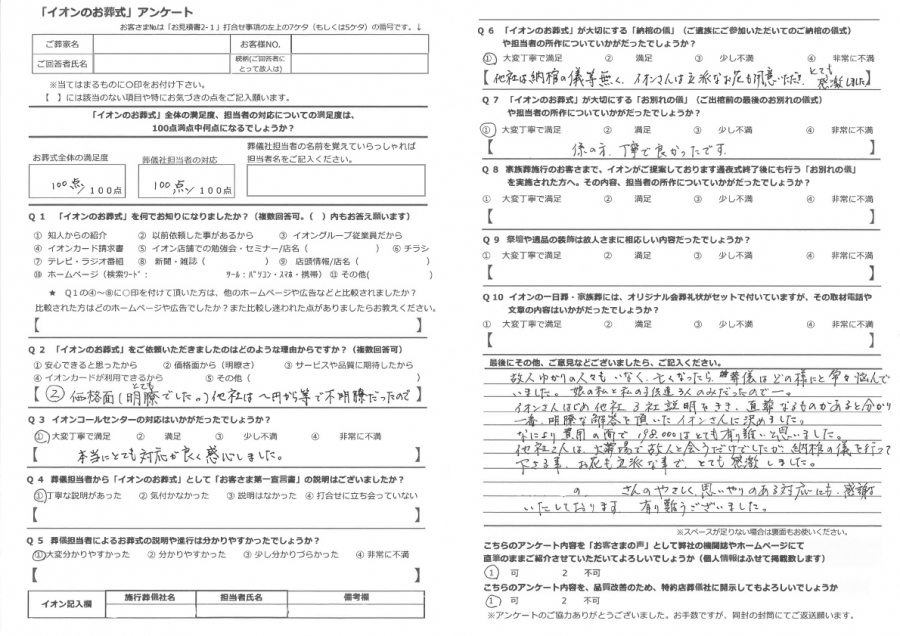 「イオンのお葬式」アンケート
お客さま№は「お見積書2-1」打合せ事項の左上の7ケタ（もしくは5ケタ）の番号です。↓
ご葬家名 お客様NO.
ご回答者氏名 続柄(ご回答者にとって故人は)
※当てはまるものに〇印をお付け下さい。
【　】には該当のない項目や特にお気づきの点をご記入願います。
「イオンのお葬式」全体の満足度、担当者の対応についての満足度は、
100点満点中何点になるでしょうか？
葬儀社担当者の名前を覚えていらっしゃれば
担当者名をご記入ください。
お葬式全体の満足度 葬儀社担当者の対応
100点/100点 100点/100点
Q 1 「イオンのお葬式」を何でお知りになりましたか？（複数回答可。（　）内もお答え願います）
① 知人からの紹介 ② 以前依頼した事があるから ③ イオングループ従業員だから
④ イオンカード請求書 ⑤ イオン店舗での勉強会・セミナー/店名（　） ⑥ チラシ
⑦ テレビ・ラジオ番組 ⑧ 新聞・雑誌（　） ⑨ 店頭情報/店名（　）
⑩ ホームページ（検索ﾜｰﾄﾞ： ﾂｰﾙ：ﾊﾟｿｺﾝ・ｽﾏﾎ・携帯） ⑪ その他(　)
★ Q1の④～⑧に〇印を付けて頂いた方は、他のホームページや広告などと比較されましたか？
比較された方はどのホームページや広告でしたか？また比較し迷われた点がありましたらお教えください。
【　】
Q 2 「イオンのお葬式」をご依頼いただきましたのはどのような理由からですか？（複数回答可）
①安心できると思ったから ②価格面から（明瞭さ） ③サービスや品質に期待したから
④イオンカードが利用できるから ⑤その他（　）
【② 価格面(明瞭とてもでした。)他社は〜円から等で不明瞭だったので】
Q 3 イオンコールセンターの対応はいかがだったでしょうか？
①大変丁寧で満足 ② 満足 ③ 少し不満 ④ 非常に不満
【本当にとても対応が良く感心しました。】
Q 4 葬儀担当者から「イオンのお葬式」として「お客さま第一宣言書」の説明はございましたか？
①丁寧な説明があった ②気付かなかった ③説明はなかった ④打合せに立ち会っていない
【　】
Q 5 葬儀担当者によるお葬式の説明や進行は分かりやすかったでしょうか？
①大変分かりやすかった ②分かりやすかった ③少し分かりづらかった ④非常に不満
【　】
イオン記入欄 施行葬儀社名 担当者氏名 備考欄
Q 6 「イオンのお葬式」が大切にする「納棺の儀」（ご遺族にご参加いただいてのご納棺の儀式）
や担当者の所作についていかがだったでしょうか？
① 大変丁寧で満足 ② 満足 ③ 少し不満 ④ 非常に不満
【他社は納棺の儀等無く、イオンさんは立派なお花も用意いただき、とても感激しました】
Q 7 「イオンのお葬式」が大切にする「お別れの儀」（ご出棺前の最後のお別れの儀式）
や担当者の所作についていかがだったでしょうか？
① 大変丁寧で満足 ② 満足 ③ 少し不満 ④ 非常に不満
【係の方、丁寧で良かったです.】
Q 8 家族葬施行のお客さまで、イオンがご提案しております通夜式終了後にも行う「お別れの儀」
を実施された方へ。その内容、担当者の所作についていかがだったでしょうか？
① 大変丁寧で満足 ② 満足 ③ 少し不満 ④ 非常に不満
【　】
Q 9 祭壇や遺品の装飾は故人さまに相応しい内容だったでしょうか？
① 大変丁寧で満足 ② 満足 ③ 少し不満 ④ 非常に不満
【　】
Q10 イオンの一日葬・家族葬には、オリジナル会葬礼状がセットで付いていますが、その取材電話や
文章の内容はいかがだったでしょうか？
① 大変丁寧で満足 ② 満足 ③ 少し不満 ④ 非常に不満
【　】
最後にその他、ご意見などございましたら、ご記入ください。
故人ゆかりの人々もいなく、亡くなったら、葬儀はどの様にと常々悩んで
いました。娘の私と私の子供達3人のみだったので―。
イオンさんはじめ他社3社説明をきき、直葬なるものがあると分かり
一番、明瞭な解答を頂いたイオンさんに決めました。
なにより費用の面で198,000はとても有り難いと思いました。
他社2人は、火葬場で故人と会うだけでしたが、納棺の儀を行って
下さる事、お花も立派な事で、とても感激しました。
の さんのやさしく、思いやりのある対応にも、感謝
いたしております 有り難うございました。
※スペースが足りない場合は裏面もお使いください。
こちらのアンケート内容を「お客さまの声」として弊社の機関誌やホームページにて
直筆のままご紹介させていただいてよろしいでしょうか（個人情報はふせて掲載致します）
1 可 2 不可
こちらのアンケート内容を、品質改善のため、特約店葬儀社に開示してもよろしいでしょうか
1 可 2 不可
※アンケートのご協力ありがとうございました。お手数ですが、同封の封筒にてご返送願います。